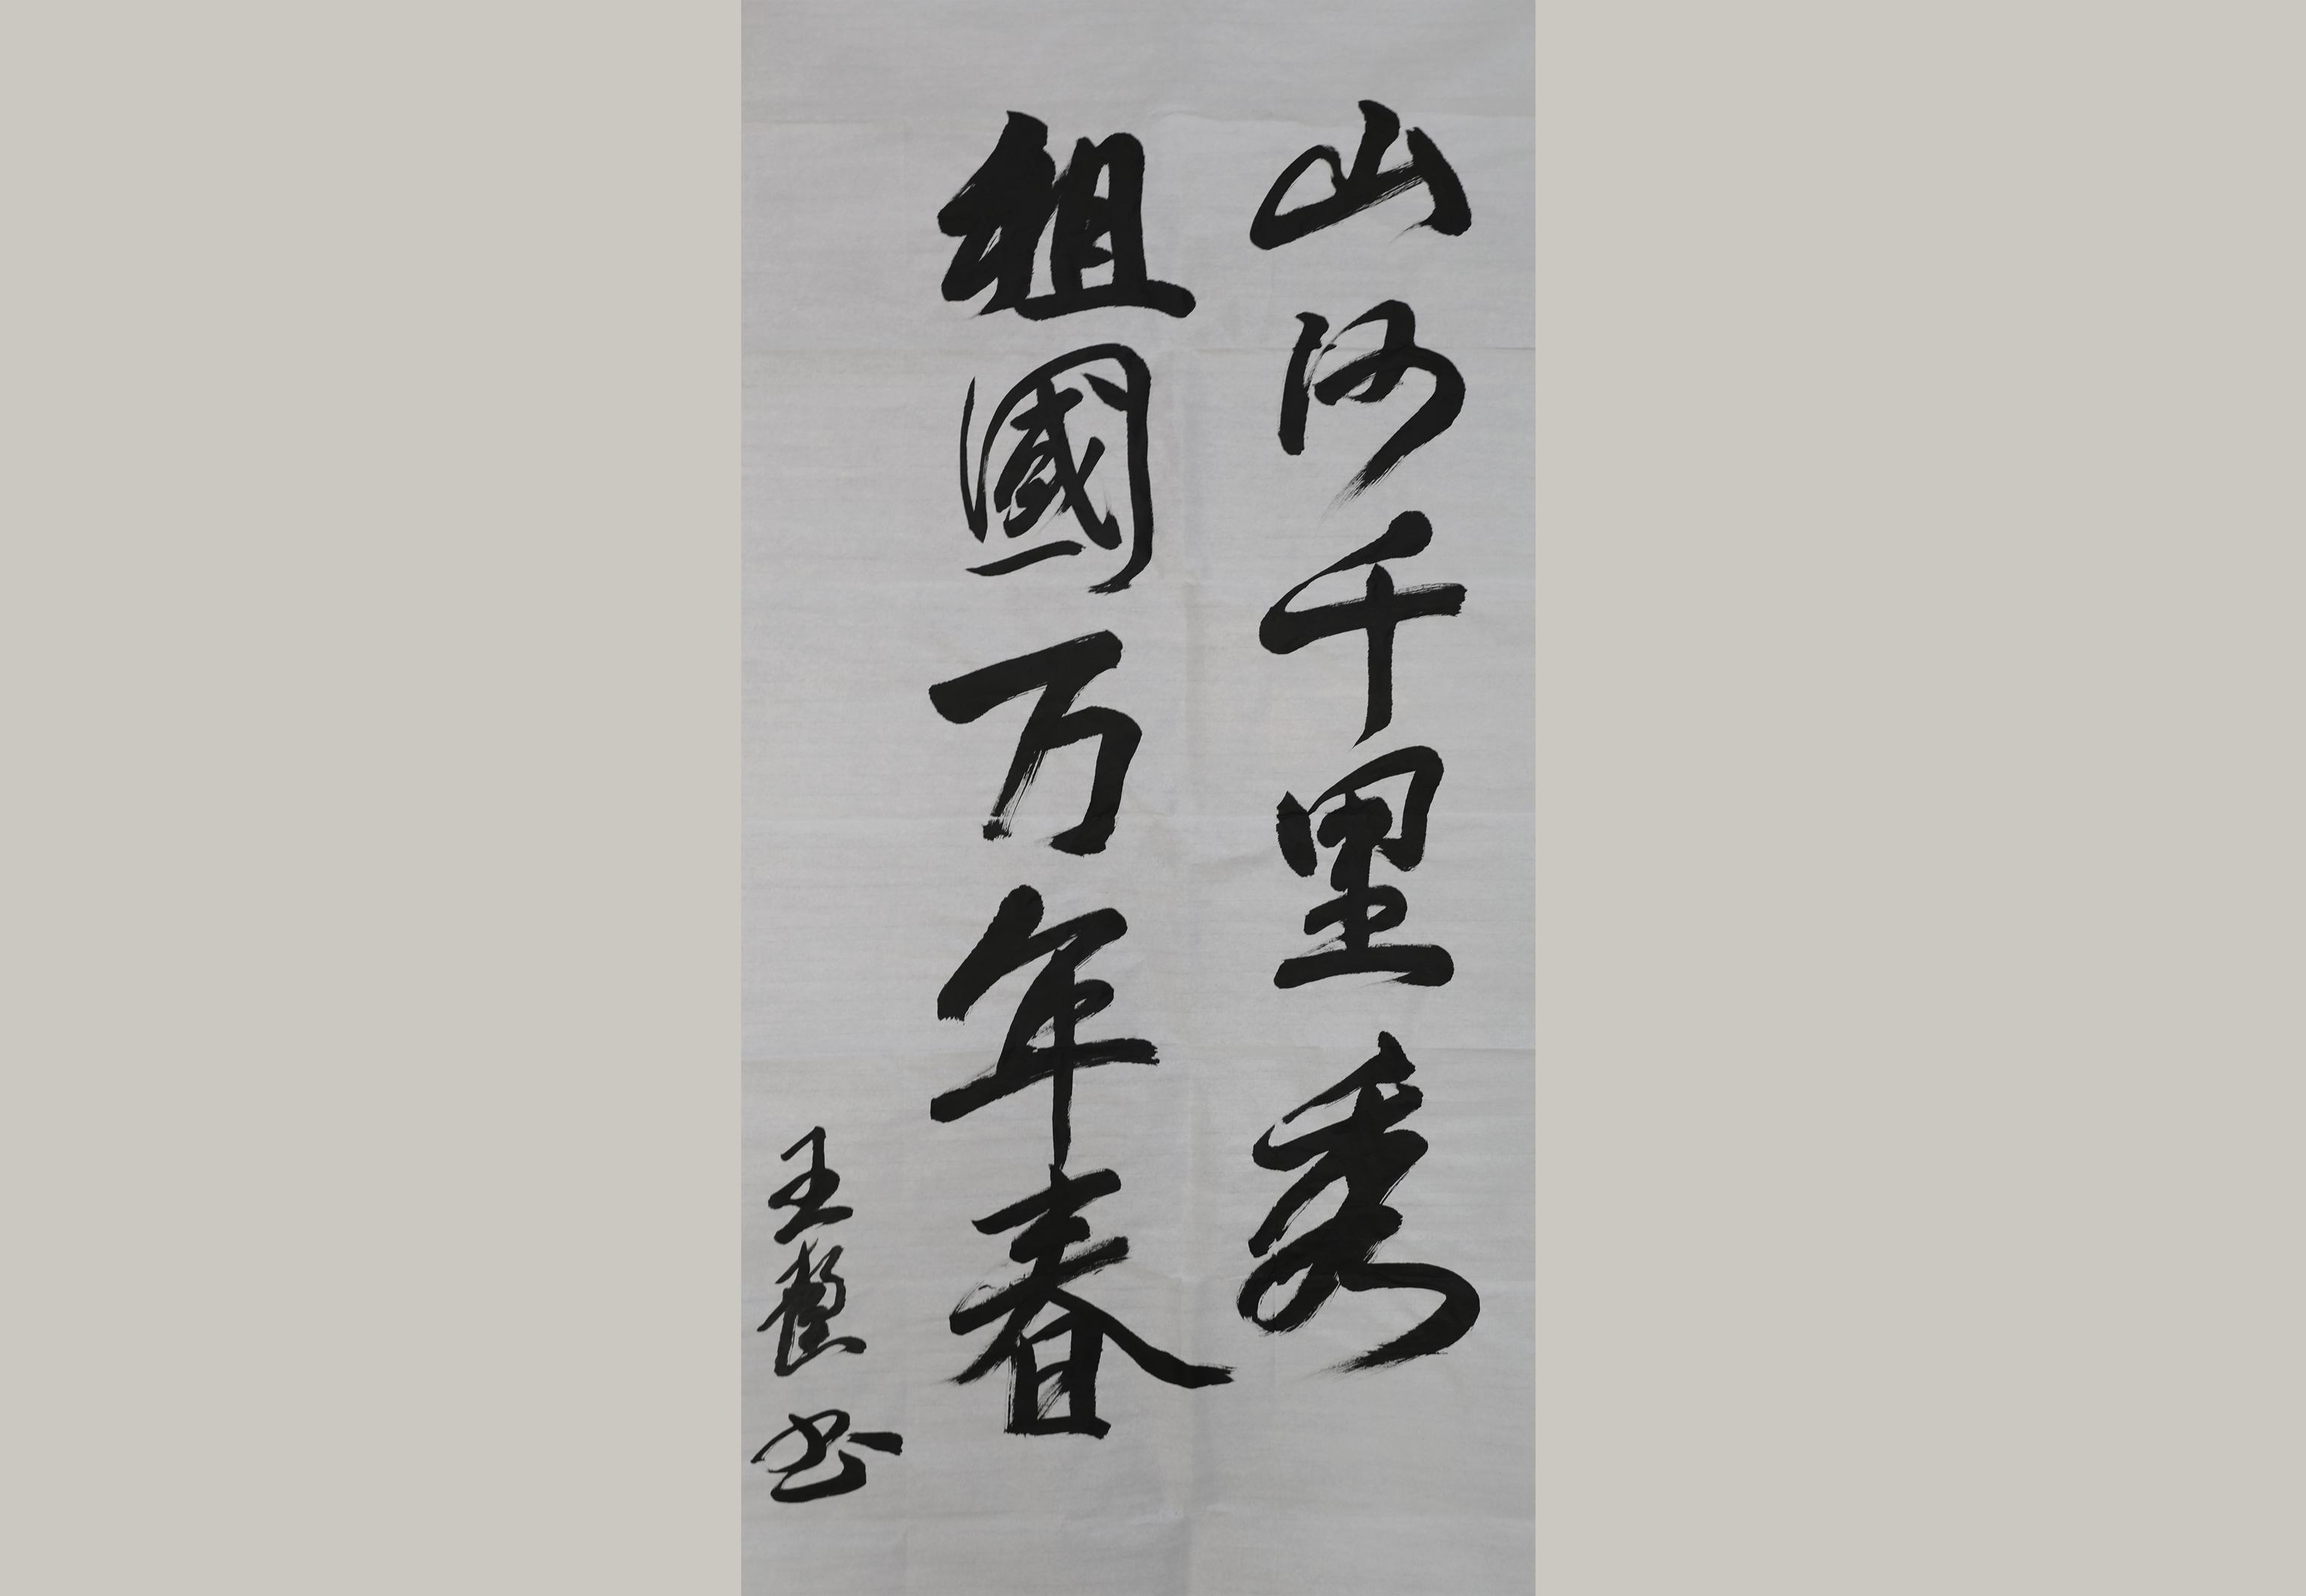 山河千里秀
祖國万年春
王 书